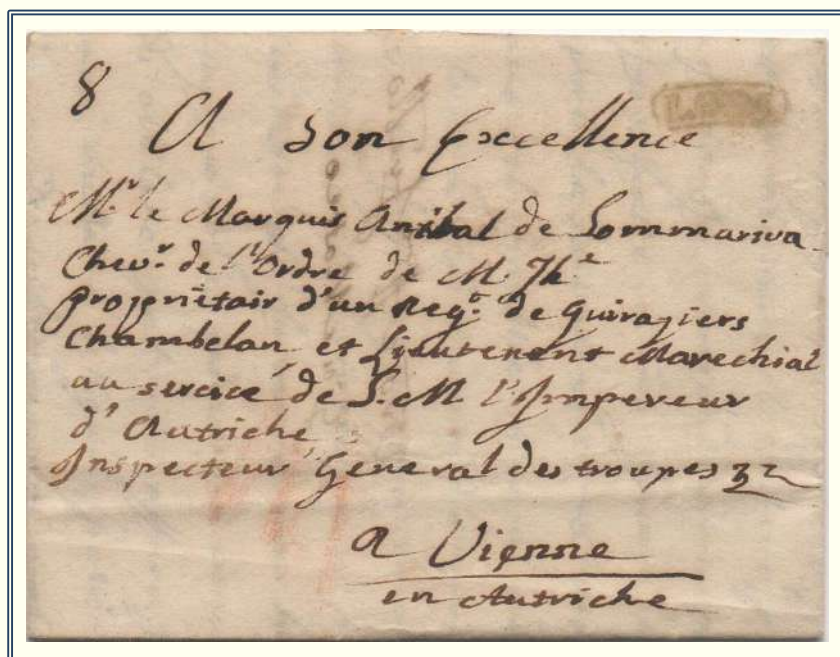 8
A Son Excellence
Mr. le Marquis Anibal de Sommariva
Chevr. de l'Ordre de M. The
proprietair d'un Regt. de Quirasiers
Chambelan et Lieutenent Marechial
au sercice de S. M l'Impereur
d'Autriche
Inspecteur General des troupes
a Vienne
en Autriche